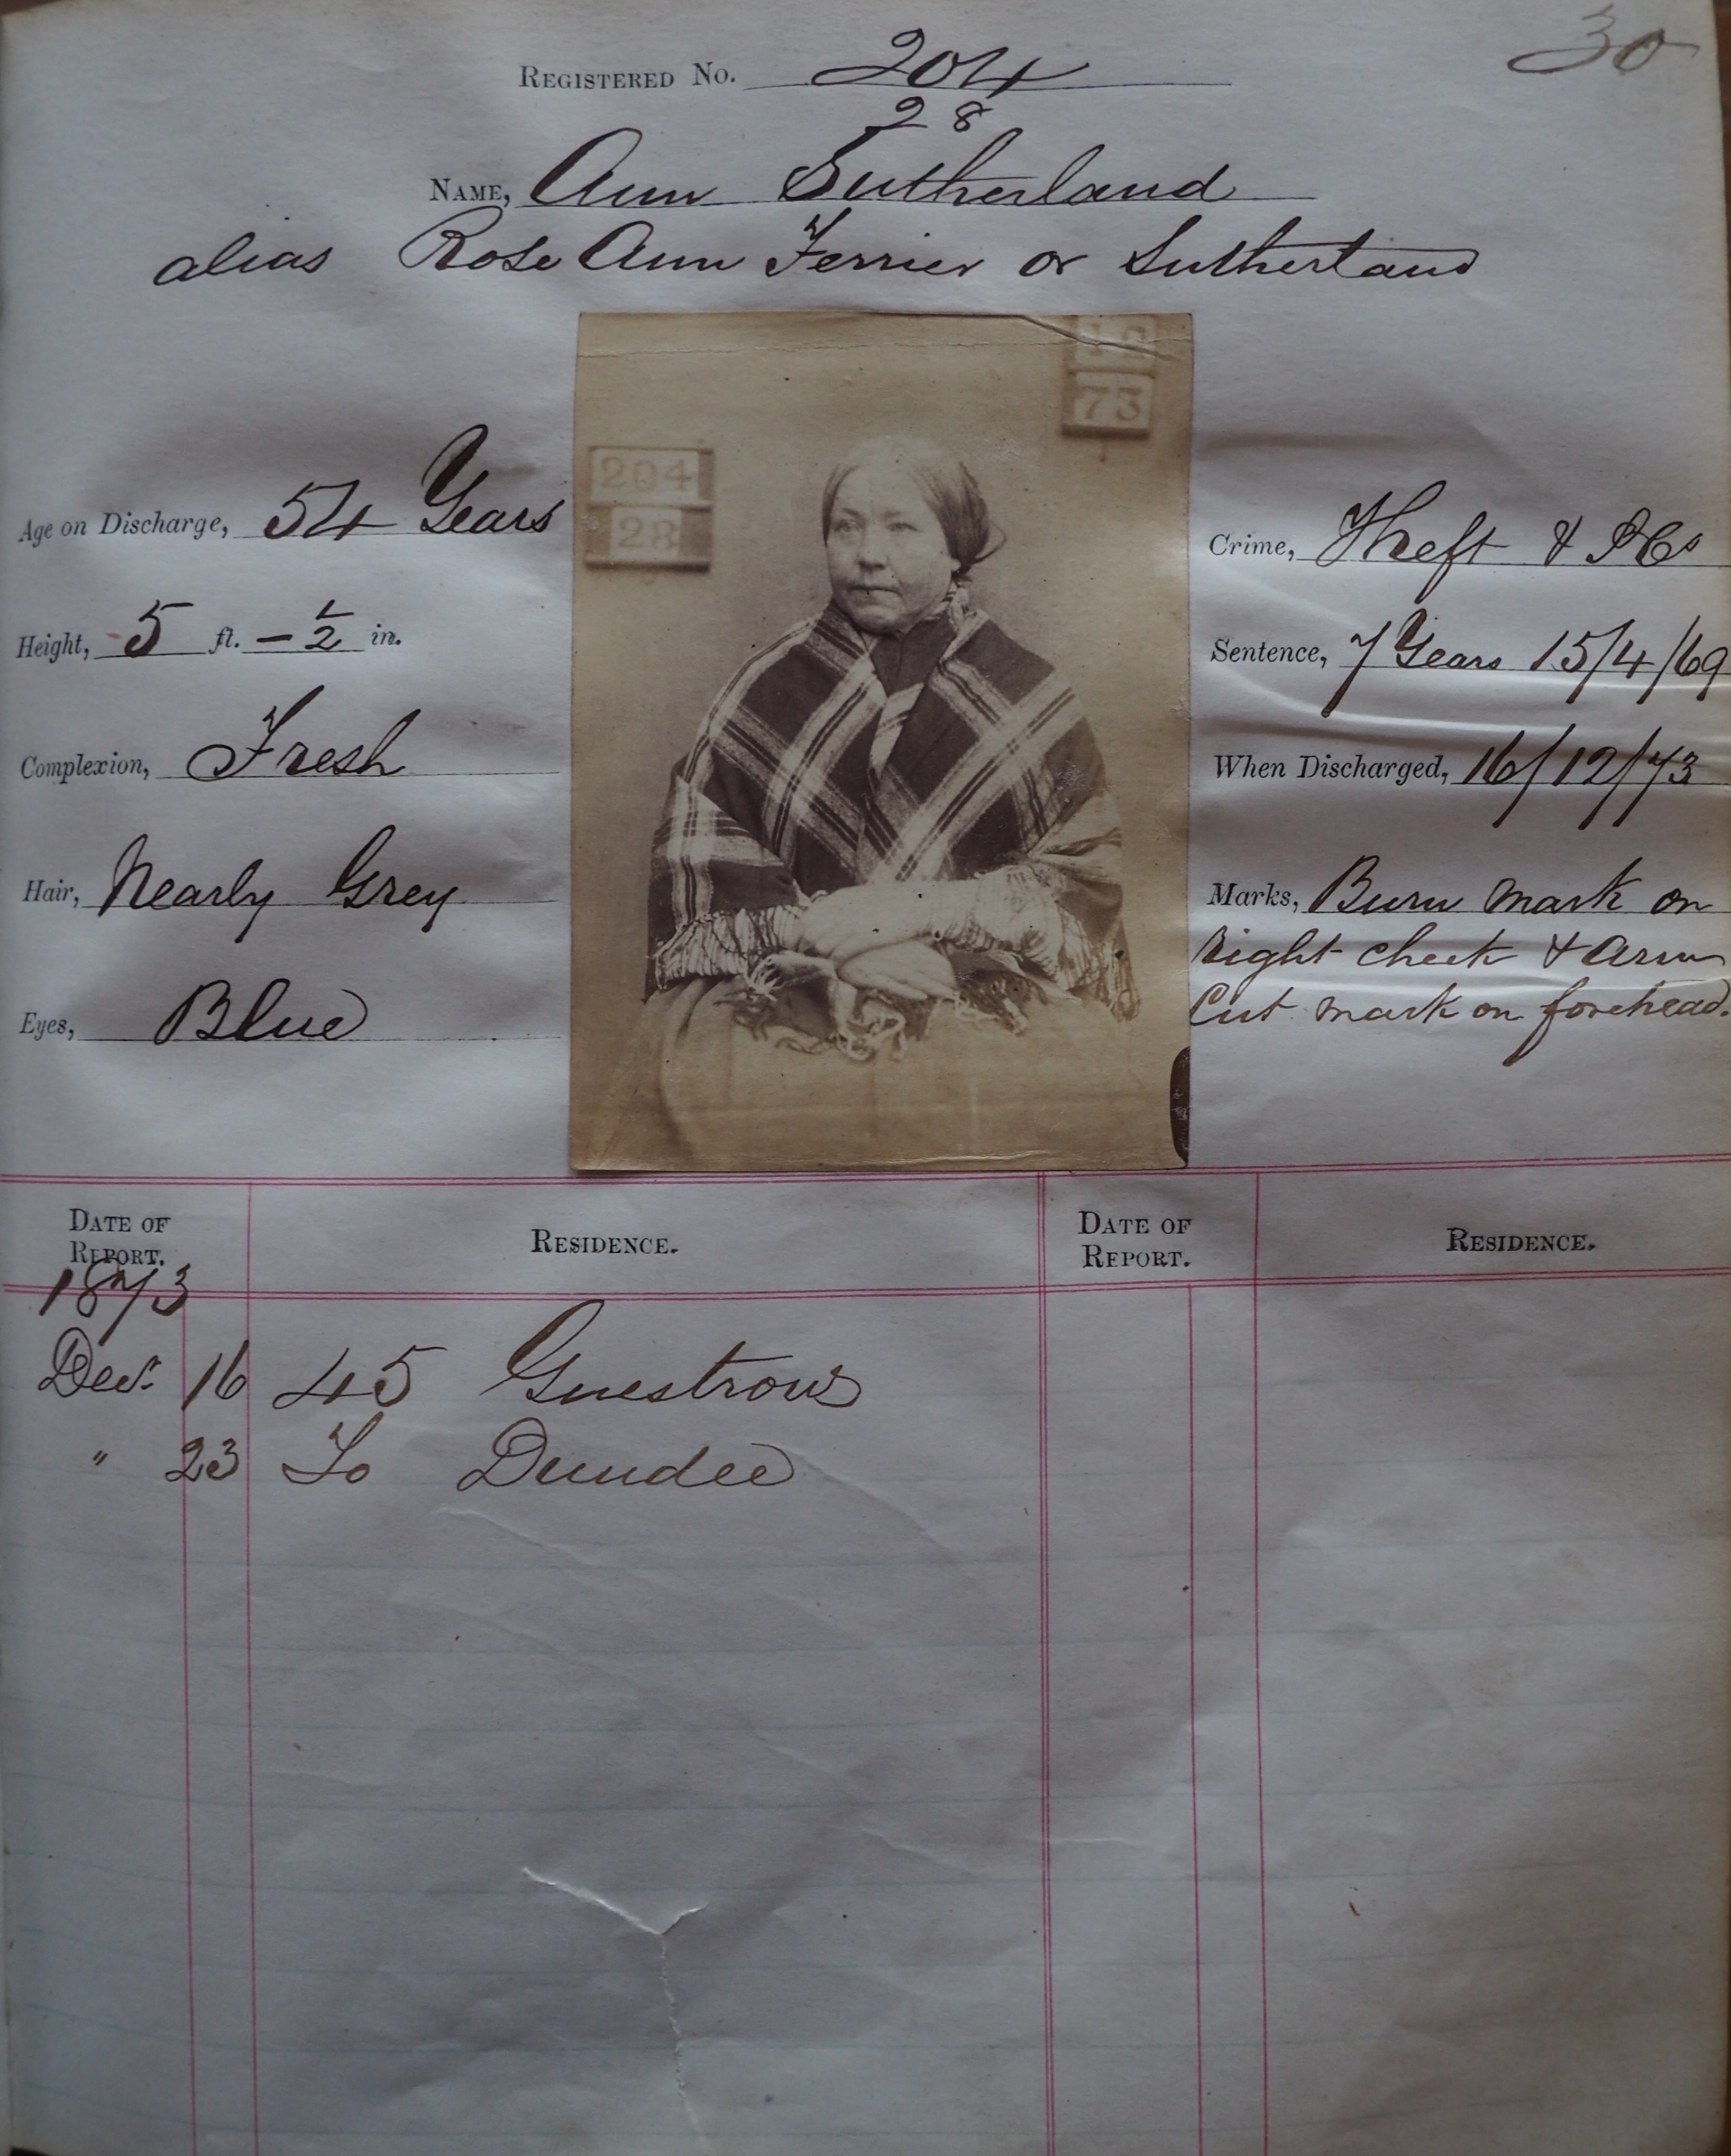 30
REGISTERED No. 204
28
NAME, Ann Sutherland
alias Rose Ann Ferrier or Sutherland
12
73
204
28
Age on Discharge, 54 Years
Height, 5 ft. – ½ in.
Complexion, Fresh
Hair, Nearly Grey
Eyes, Blue
Crime, Theft & PCs
Sentence, 7 Years 15/4/69
When Discharged, 16/12/73
Marks, Burn mark on
right cheek & arm
Cut mark on forehead.
DATE OF REPORT. RESIDENCE. DATE OF REPORT. RESIDENCE.
1873
Decr. 16 45 Guestrow
" 23 To Dundee